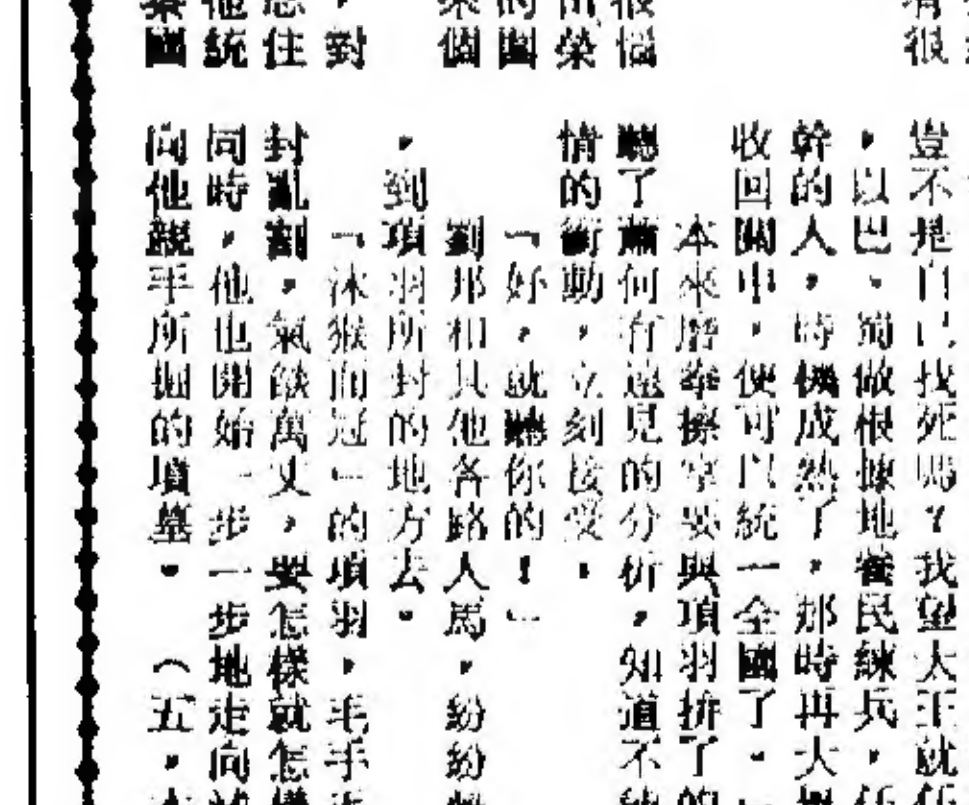 有很
豈不是自己找死嗎？我望大王就任
，以巴、蜀做根據地養民練兵，任
幹的人，時機成熟了，那時再大舉
收回關中，便可以統一全國了。」
本來磨拳擦掌要與項羽拚了的
聽了蕭何有遠見的分析，知道不
情的衝動，立刻接受。
「好，就聽你的！」
劉邦和其他各路人馬，紛紛
，到項羽所封的地方去。
「沐猴而冠」的項羽，毛手毛
封亂割，氣燄萬丈，要怎樣就怎樣
同時，他也開始一步一步地走向
向他親手所掘的墳墓。（五．
很惱
榮
的園
個
，對
忘住
他統
秦國